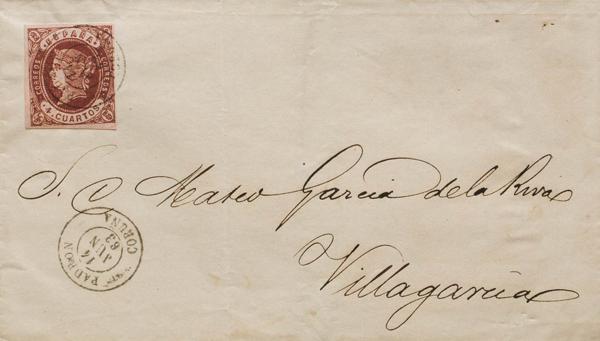 ESPAÑA
CORREOS CORREOS
4 CUARTOS
S. C. Mateo Garcia de la Riva
Villagarcia
PADRON
14
JUN
63
CORUÑA